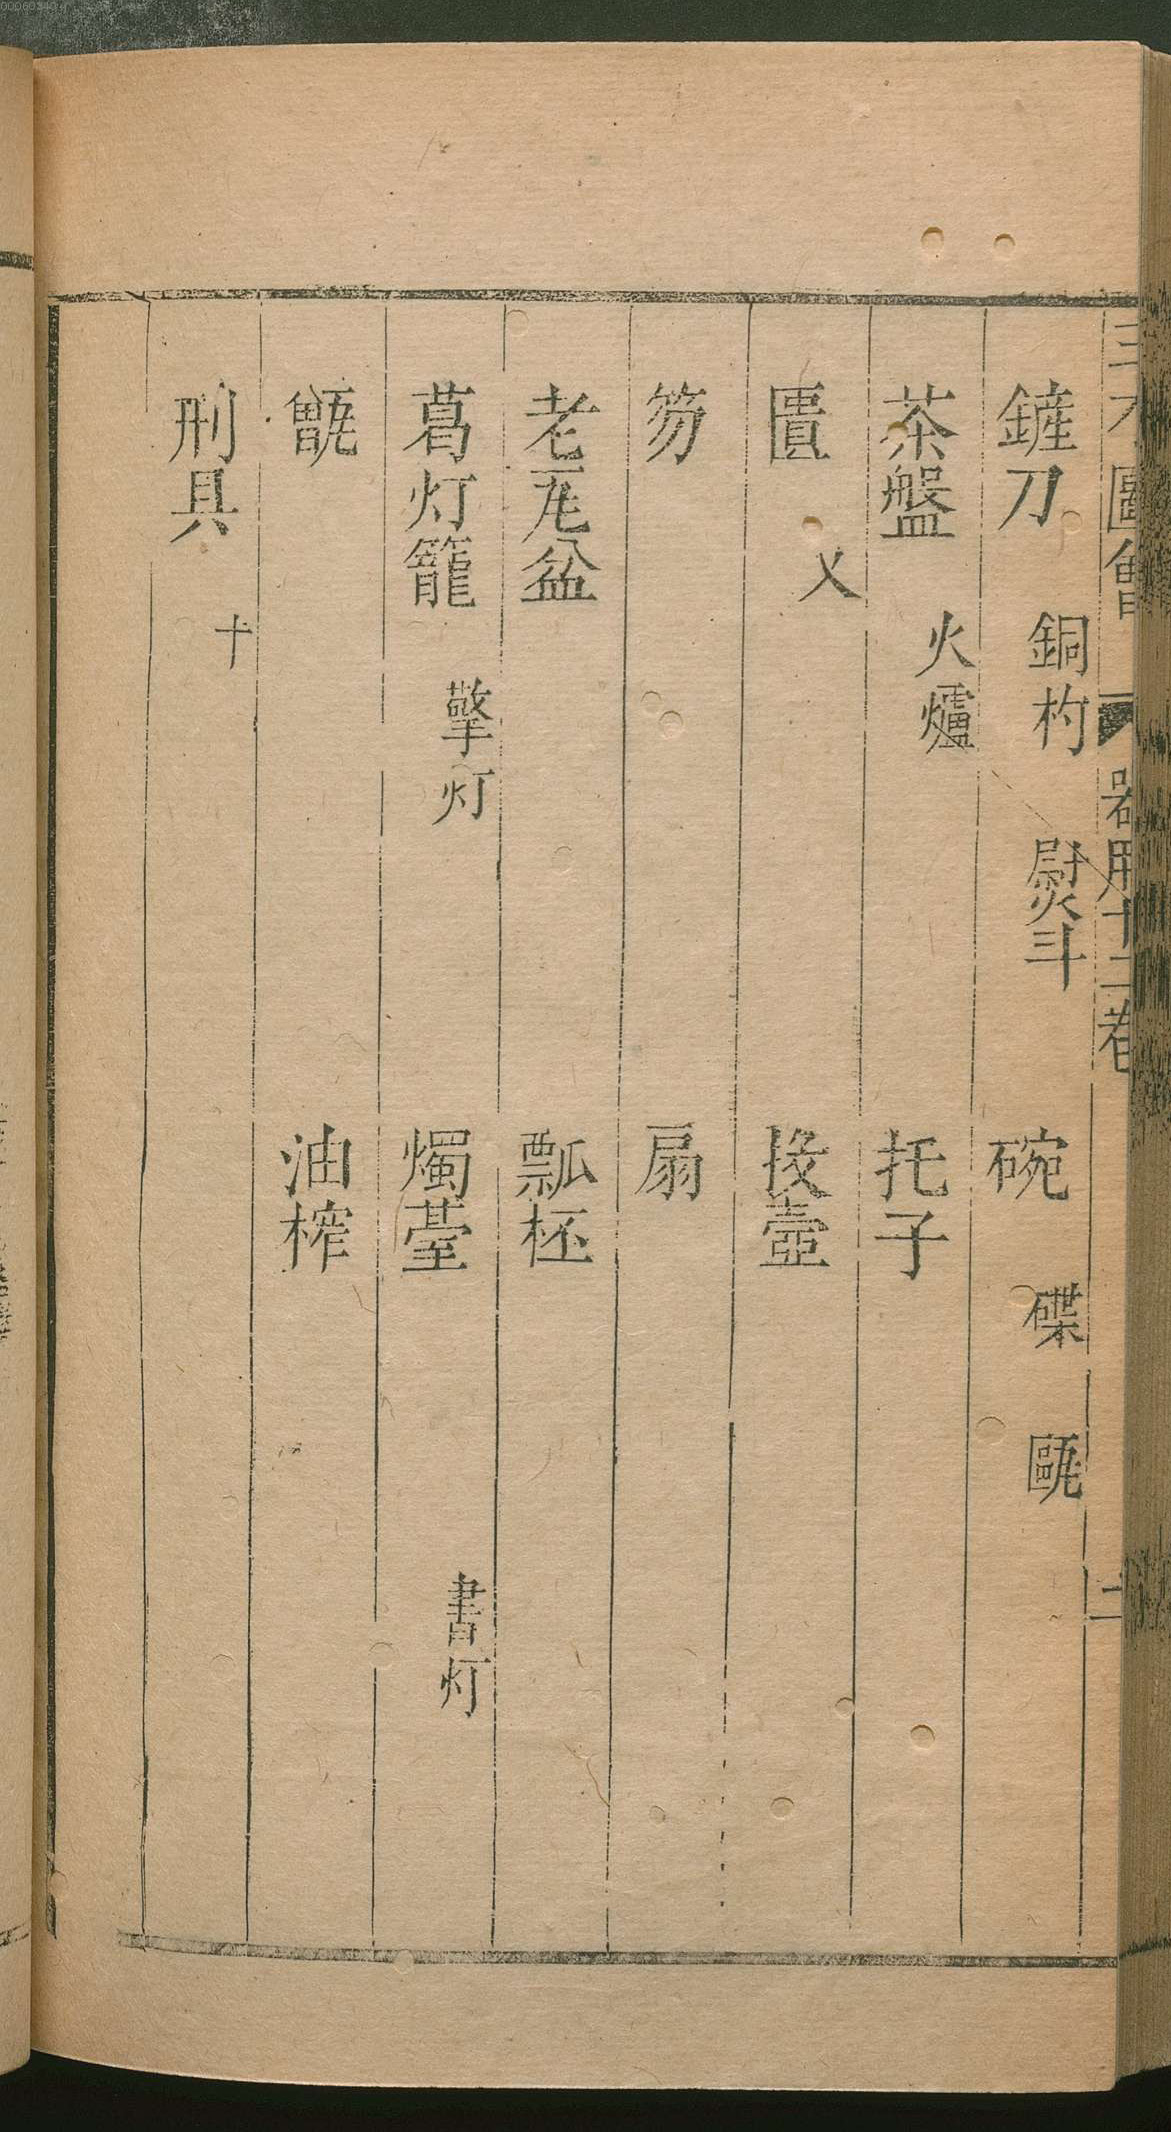 三才圖會 器用十二卷 二
鏟刀 銅杓 熨斗 碗 碟 甌
茶盤 火爐 托子
匱 又 投壺
笏 扇
老瓦盆 瓢杯
葛灯籠 擎灯 燭䑓 書灯
甑 油榨
刑具 十